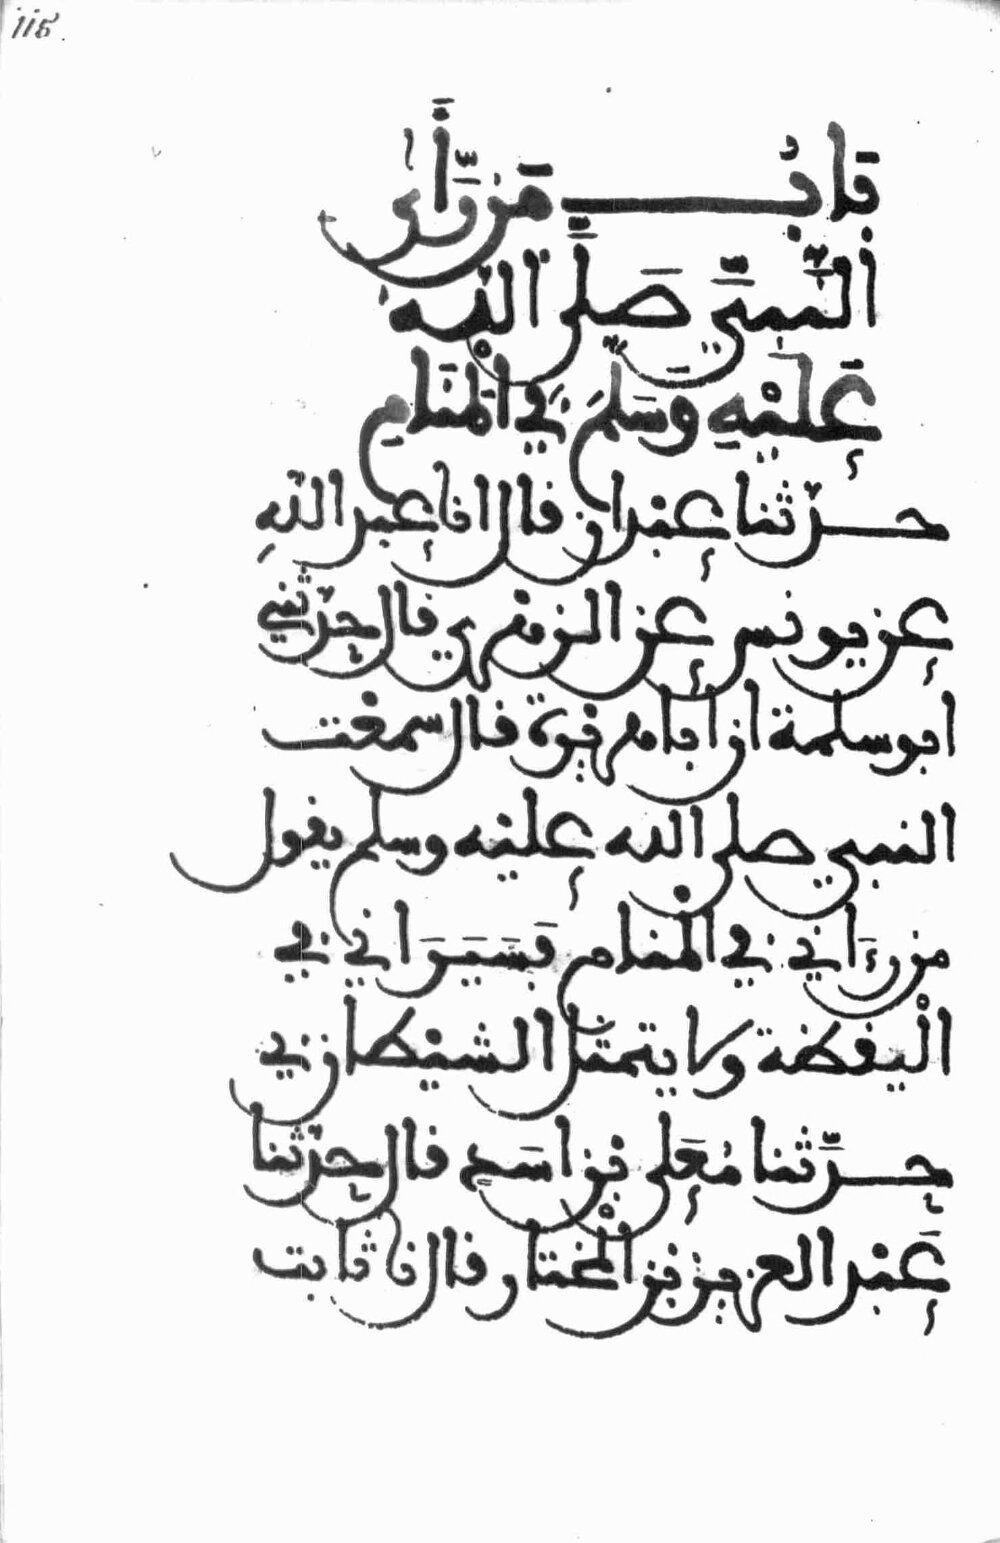 118.
بَابُ مَن رَّأَى
النَّبِيَّ صَلَّى اللهُ
عَلَيْهِ وَسَلَّمَ فِي الْمَنَامِ
حدّثنا عبْدان قال انا عبد اللهِ
عن يونس عن الزهري قال حدّثني
ابو سلمة ان ابا هريرة قال سمعت
النبي صلى الله عليه وسلم يقول
من رءَاني في الْمنام فَسَيَرَاني في
الْيقظة ولا يتمثل الشيْطان بي
حدّثنا مُعَلى بن اسَد قال حدّثنا
عَبْد العزيز بن الْمختار قال نا ثابت